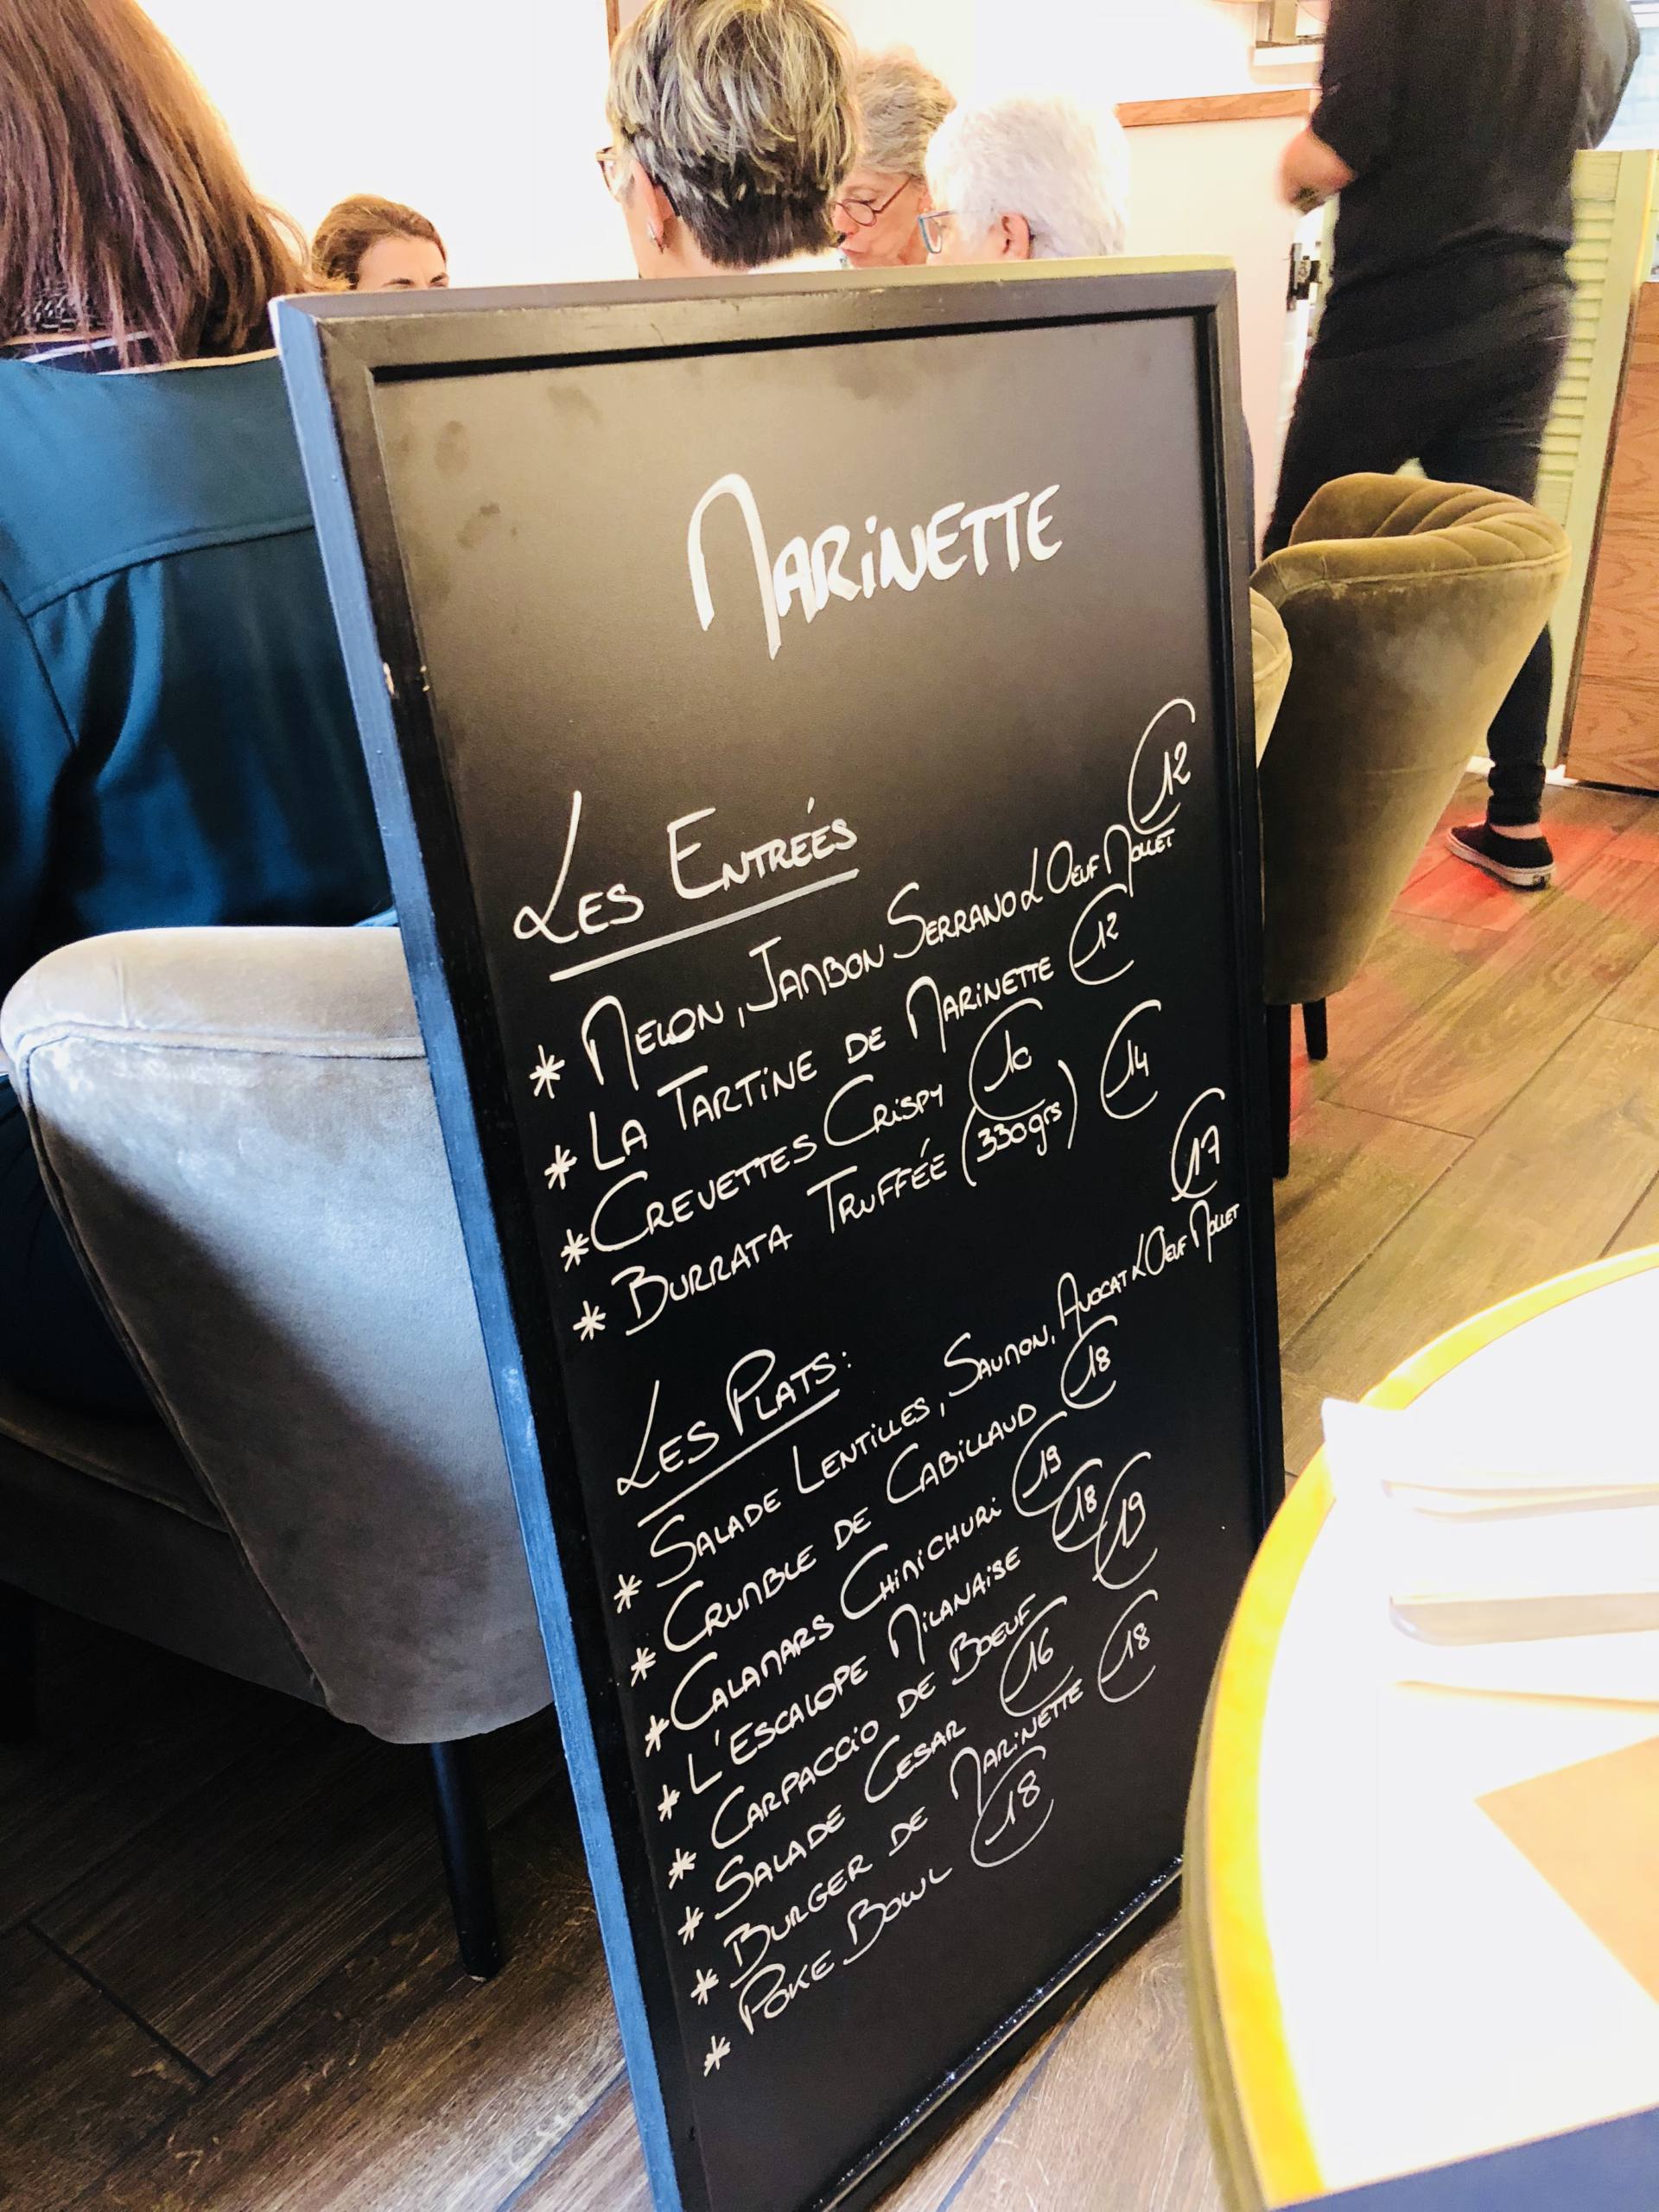 MARINETTE
LES ENTRÉES
* MELON, JAMBON SERRANO & OEUF MOLLET 12
* LA TARTINE DE MARINETTE 12
* CREVETTES CRISPY 10
* BURRATA TRUFFÉE (330grs) 14
LES PLATS:
* SALADE LENTILLES, SAUMON, AVOCAT & OEUF MOLLET 17
* CRUMBLE DE CABILLAUD 18
* CALAMARS CHIMICHURI 19
* L'ESCALOPE MILANAISE 18
* CARPACCIO DE BOEUF 19
* SALADE CESAR 16
* BURGER DE MARINETTE 18
* POKE BOWL 18